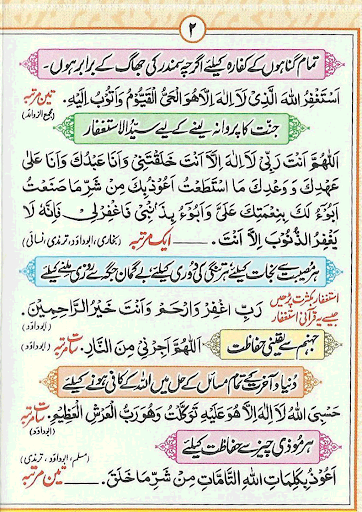 ۲
تمام گناہوں کے کفارہ کیلئے اگرچہ سمندر کی جھاگ کے برابر ہوں۔
اَسْتَغْفِرُ اللهَ الَّذِیْ لَا اِلٰهَ اِلَّا هُوَ الْحَیُّ الْقَیُّوْمُ وَاَتُوْبُ اِلَیْهِ۔ تین مرتبہ
(مجمع الزوائد)
جنّت کا پروانہ لینے کے لیے سیّدُ الاستغفار
اَللّٰهُمَّ اَنْتَ رَبِّیْ لَا اِلٰهَ اِلَّا اَنْتَ خَلَقْتَنِیْ وَاَنَا عَبْدُكَ وَاَنَا عَلٰی
عَهْدِكَ وَوَعْدِكَ مَا اسْتَطَعْتُ اَعُوْذُ بِكَ مِنْ شَرِّ مَا صَنَعْتُ
اَبُوْءُ لَكَ بِنِعْمَتِكَ عَلَیَّ وَاَبُوْءُ بِذَنْۢبِیْ فَاغْفِرْ لِیْ فَاِنَّهٗ لَا
یَغْفِرُ الذُّنُوْبَ اِلَّا اَنْتَ۔ ایک مرتبہ (بخاری، ابوداؤد، ترمذی، نسائی)
ہر مصیبت سے نجات کیلئے ہر تنگی کی دُوری کیلئے بے گمان جگہ سے روزی ملنے کیلئے
استغفار بکثرت پڑھیں
جیسے یہ قرآنی استغفار
رَبِّ اغْفِرْ وَارْحَمْ وَاَنْتَ خَیْرُ الرَّاحِمِیْنَ
(ابوداؤد)
جہنم سے یقینی حفاظت
اَللّٰهُمَّ اَجِرْنِیْ مِنَ النَّارِ۔ سات مرتبہ (ابوداؤد)
دُنیا و آخرت کے تمام مسائل کے حل میں اللہ کے کافی ہونے کیلئے
حَسْبِیَ اللهُ لَا اِلٰهَ اِلَّا هُوَ عَلَیْهِ تَوَكَّلْتُ وَهُوَ رَبُّ الْعَرْشِ الْعَظِیْمِ۔ سات مرتبہ
(ابوداؤد)
ہر موذی چیز سے حفاظت کیلئے
(مسلم، ابوداؤد، ترمذی)
اَعُوْذُ بِكَلِمَاتِ اللهِ التَّامَّاتِ مِنْ شَرِّ مَا خَلَقَ۔ تین مرتبہ